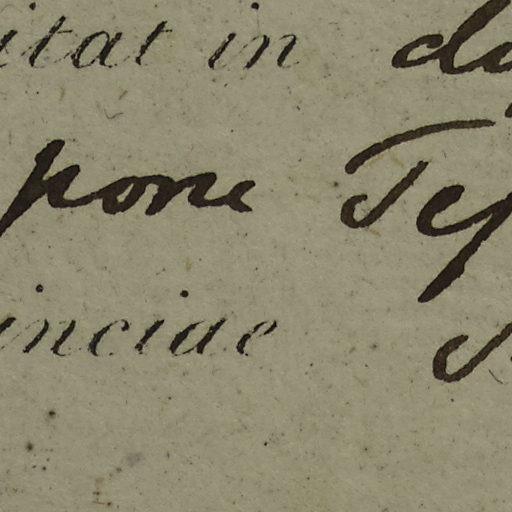 itat in
pone Tep
inciae